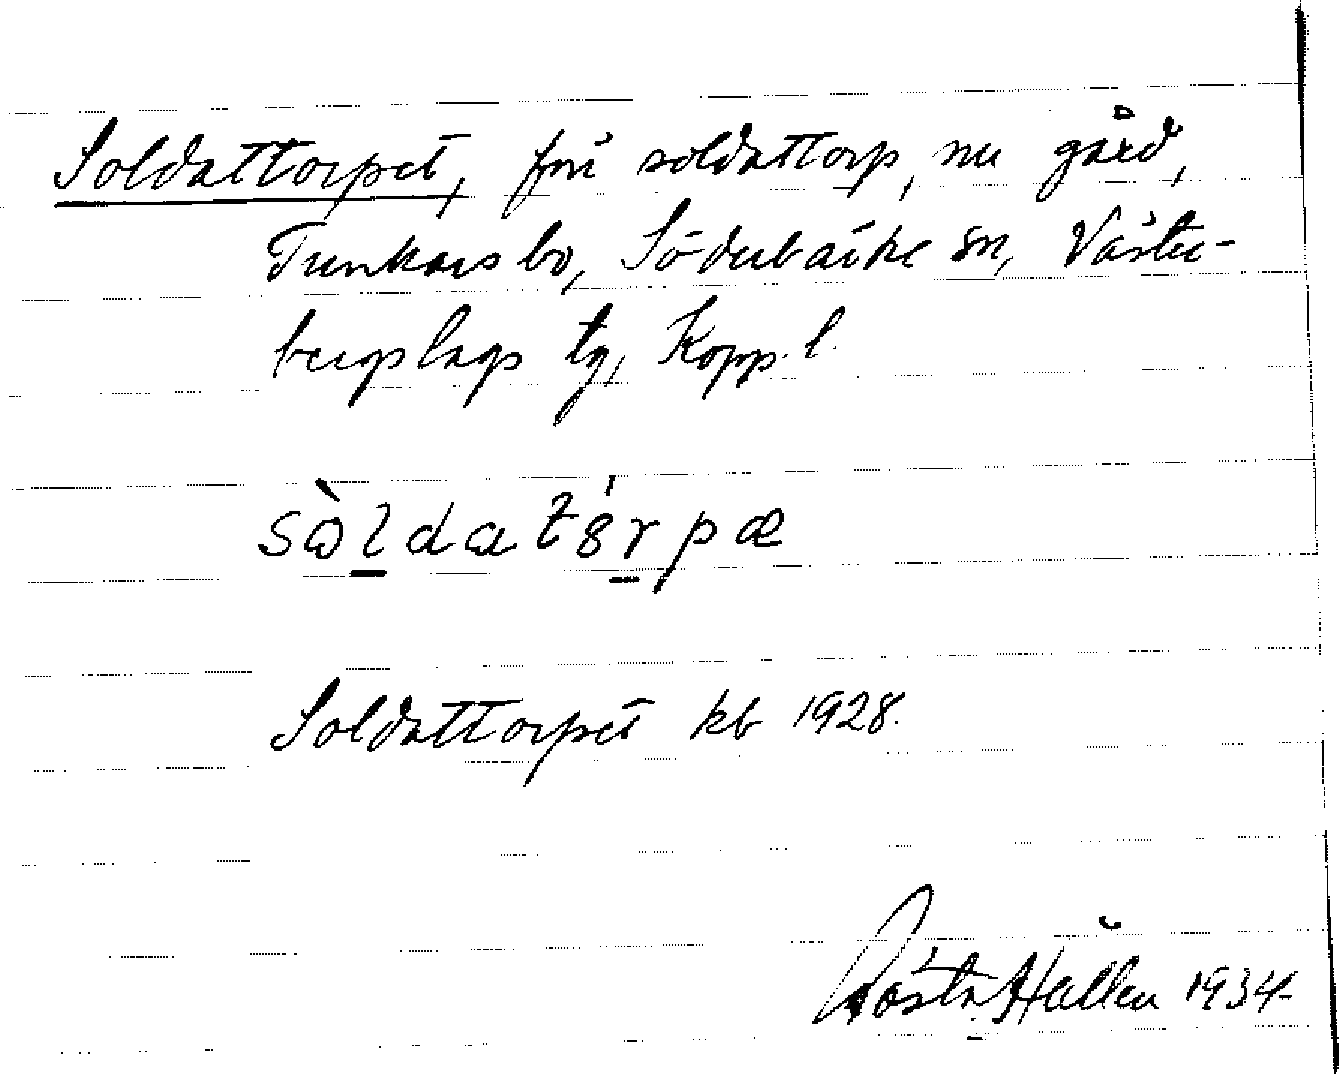 Soldattorpet, förr soldattorp, nu gård,
Tunkarsbo, Söderbärke sn, Väster-
bergslags tg, Kopp. l.
sòldatórpæ
Soldattorpet kb 1928.
Gösta Hallén 1934